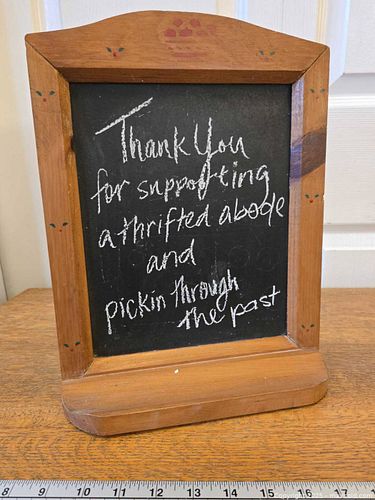 Thank You
for supporting
a thrifted abode
and
pickin through
the past
8 9 10 11 12 13 14 15 16 17